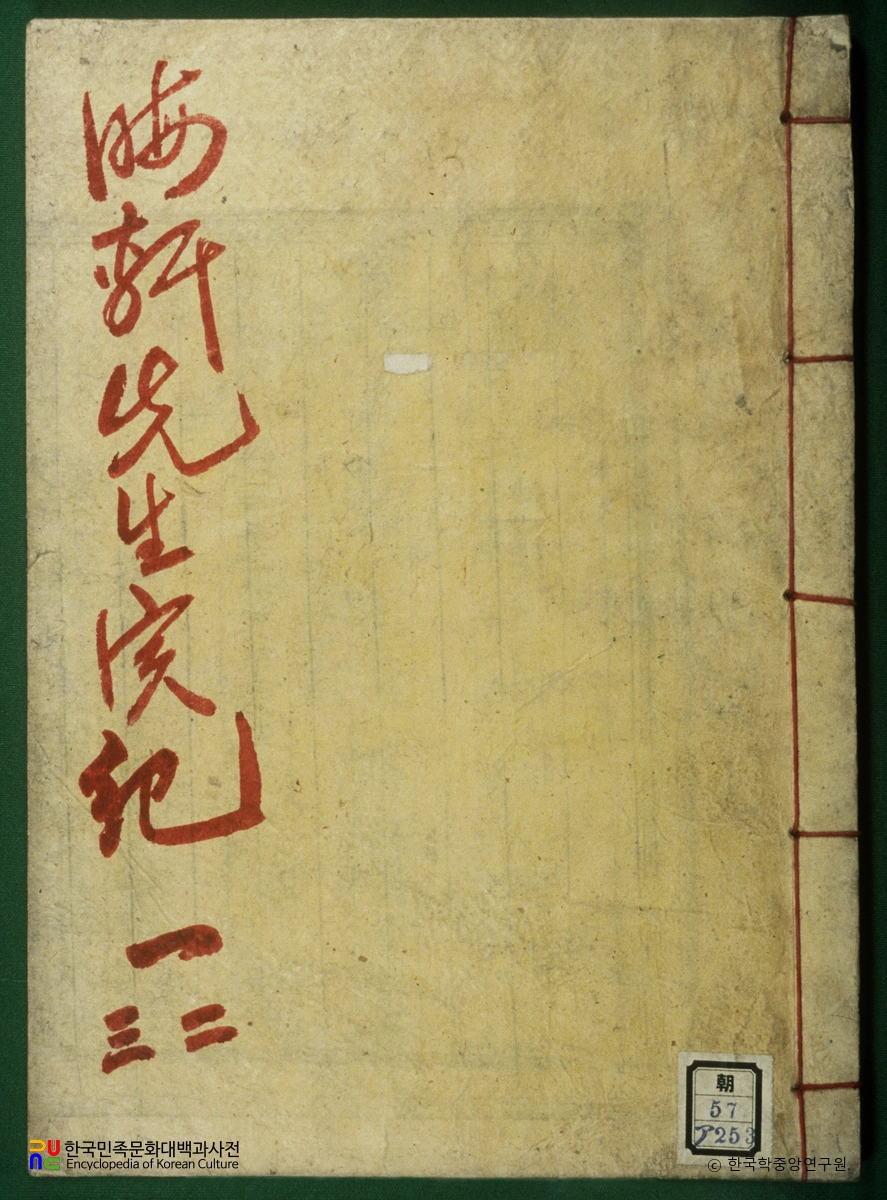 晦軒先生实紀
一
二
三
朝
57
ア253
한국민족문화대백과사전
Encyclopedia of Korean Culture
© 한국학중앙연구원